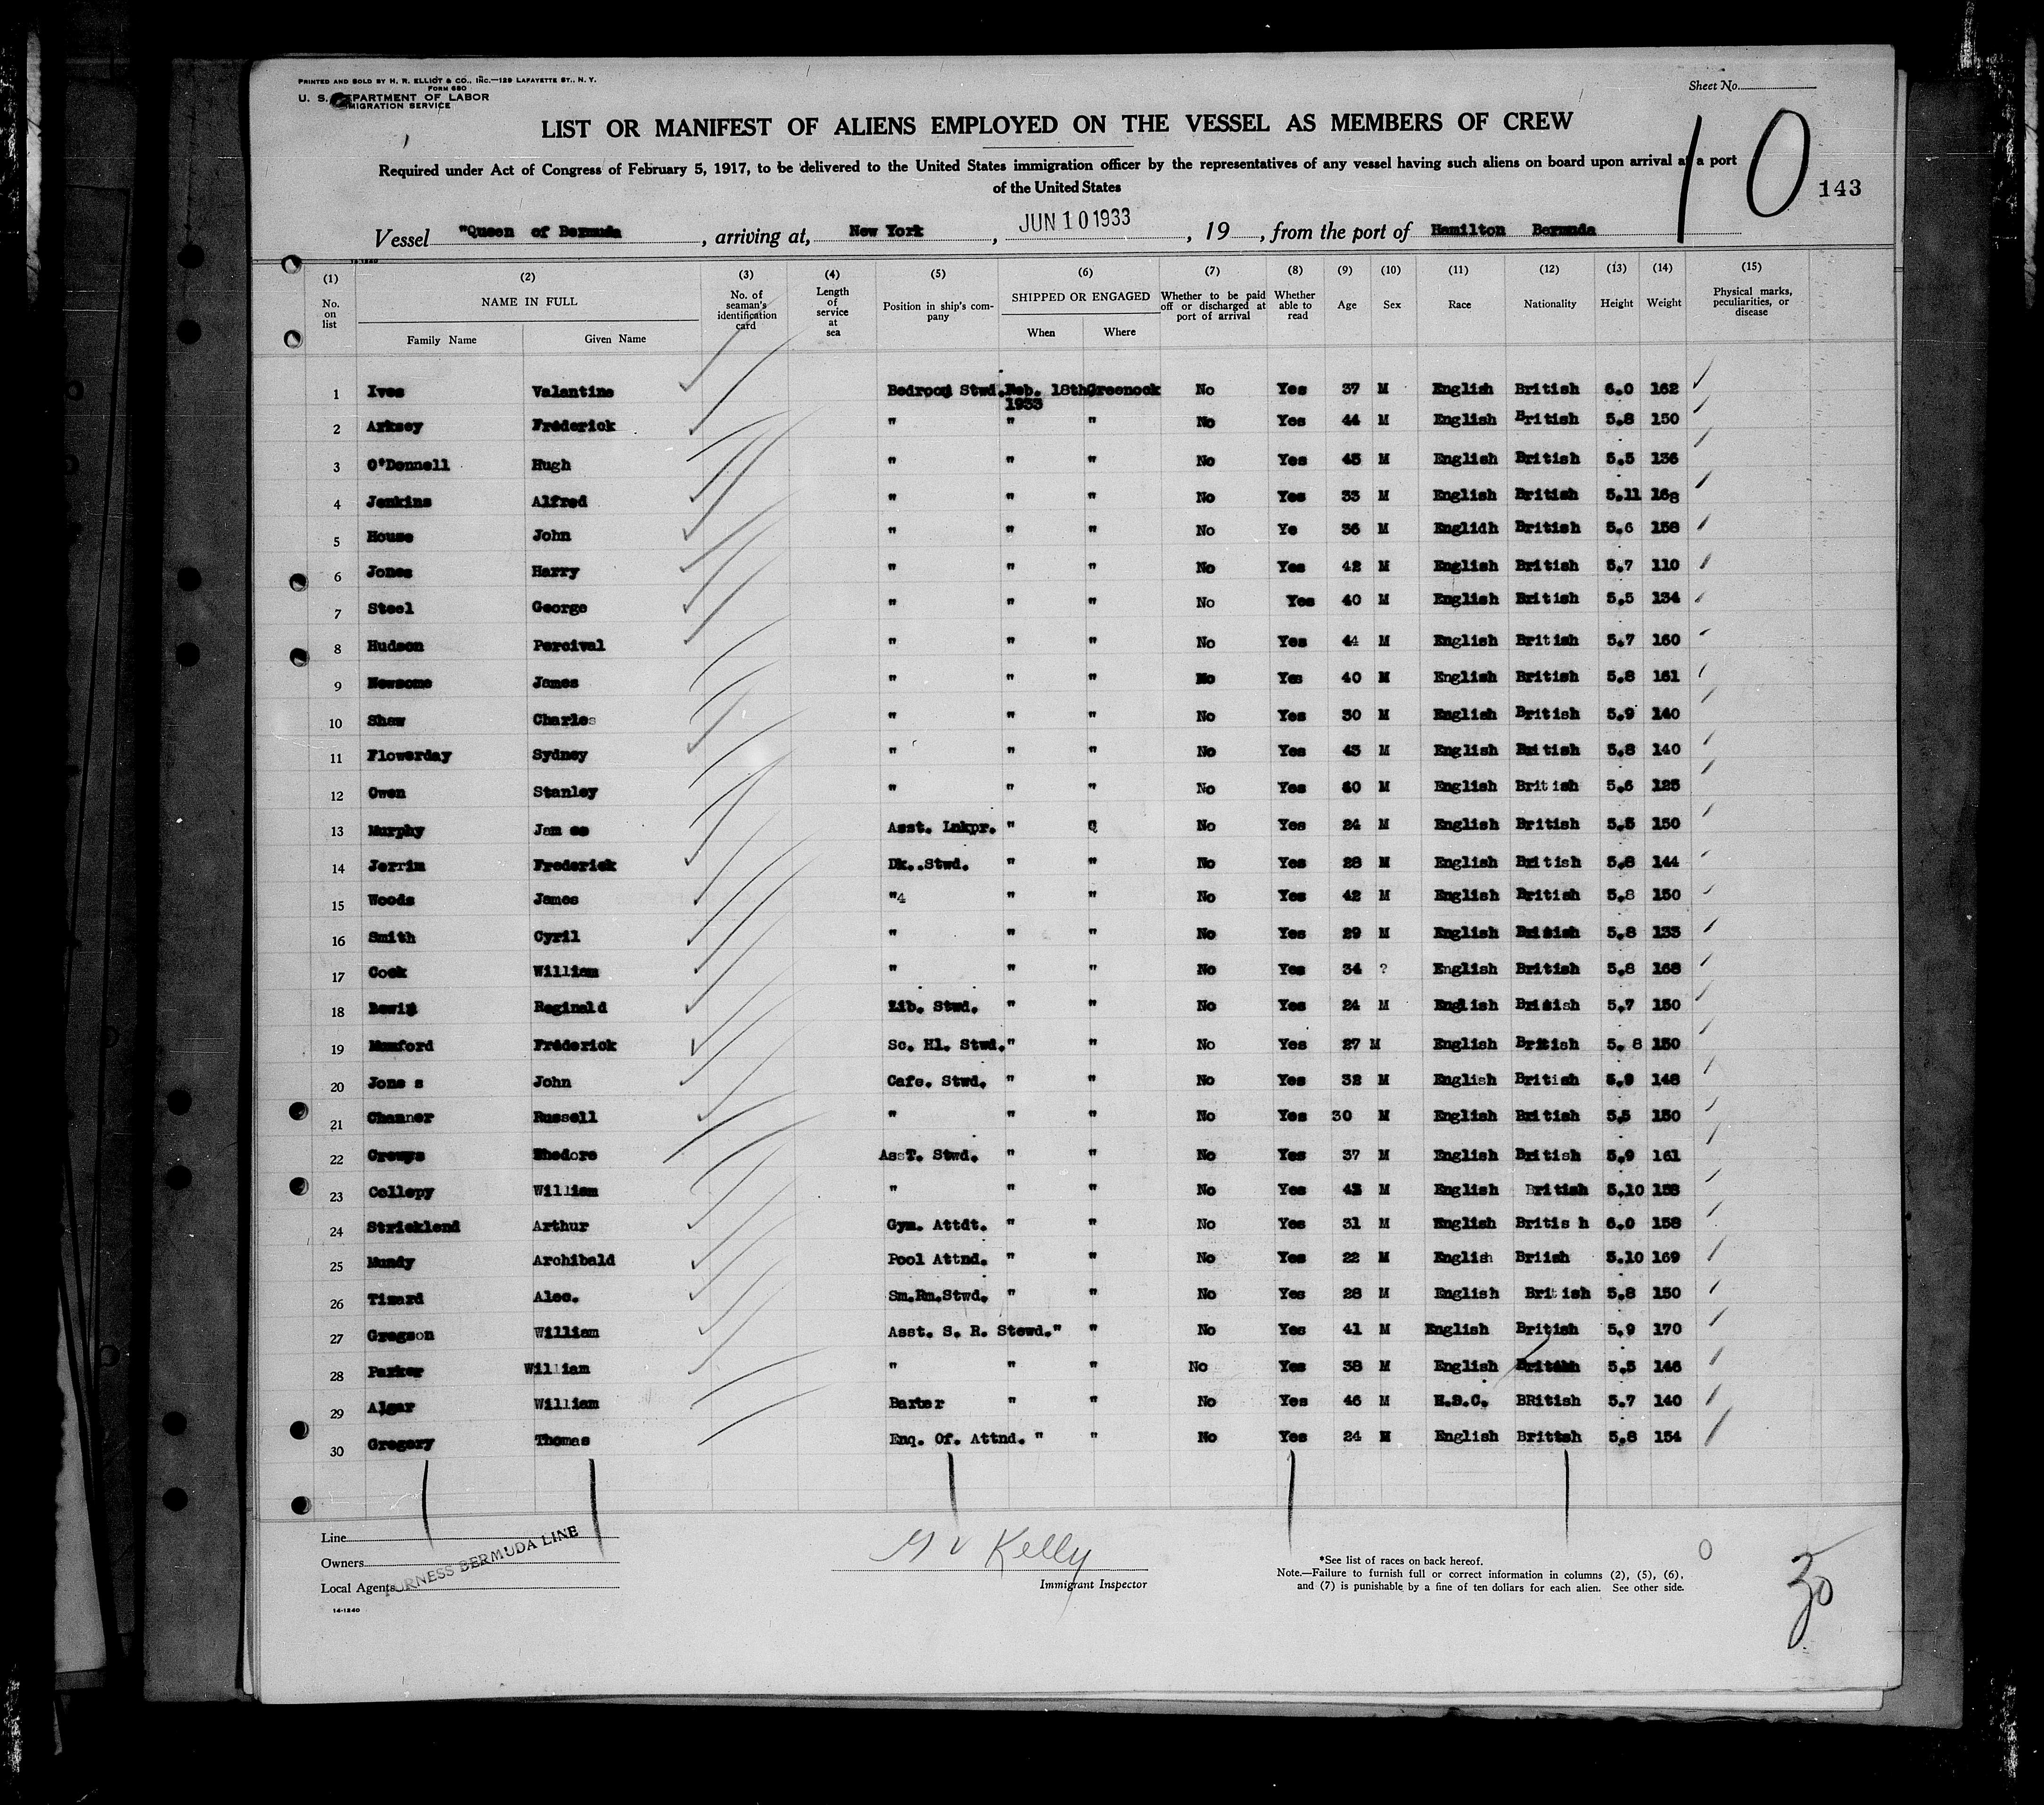 PRINTED AND SOLD BY H. R. ELLIOT & CO., INC.—129 LAFAYETTE ST., N. Y.
FORM 680
U. S. DEPARTMENT OF LABOR
IMMIGRATION SERVICE
Sheet No.
LIST OR MANIFEST OF ALIENS EMPLOYED ON THE VESSEL AS MEMBERS OF CREW
10
Required under Act of Congress of February 5, 1917, to be delivered to the United States immigration officer by the representatives of any vessel having such aliens on board upon arrival at a port
of the United States
143
Vessel "Queen of Bermuda, arriving at, New York, JUN 10 1933, 19, from the port of Hamilton Bermuda
(1) (2) (3) (4) (5) (6) (7) (8) (9) (10) (11) (12) (13) (14) (15)
No. on list NAME IN FULL Family Name Given Name No. of seaman's identification card Length of service at sea Position in ship's company SHIPPED OR ENGAGED When Where Whether to be paid off or discharged at port of arrival Whether able to read Age Sex Race Nationality Height Weight Physical marks, peculiarities, or disease
1 Ives Valantine Bedroom Stwd. Feb. 18th 1933 Greenock No Yes 37 M English British 6.0 162
2 Arksey Frederick " " " No Yes 44 M English British 5.8 150
3 O'Donnell Hugh " " " No Yes 45 M English British 5.5 136
4 Jenkins Alfred " " " No Yes 33 M English British 5.11 168
5 House John " " " No Ye 36 M Englidh British 5.6 158
6 Jones Harry " " " No Yes 42 M English British 5.7 110
7 Steel George " " " No Yes 40 M English British 5.5 134
8 Hudson Percival " " " No Yes 44 M English British 5.7 160
9 Newsome James " " " No Yes 40 M English British 5.8 161
10 Shaw Charles " " " No Yes 30 M English British 5.9 140
11 Flowerday Sydney " " " No Yes 43 M English British 5.8 140
12 Owen Stanley " " " No Yes M English British 5.6 125
13 Murphy Jam es Asst. Lnkpr. " No Yes 24 M English British 5.5 150
14 Jerrim Frederick Dk..Stwd. " " No Yes 28 M English British 5.8 144
15 Woods James "4 " " No Yes 42 M English British 5.8 150
16 Smith Cyril " " " No Yes 29 M English British 5.8 133
17 Cook William " " " No Yes 34 ? English British 5.8 168
18 Reginald Lib. Stwd. " " No Yes 24 M English British 5.7 150
19 Mumford Frederick Sc. Hl. Stwd." " No Yes 27 M English British 5. 8 150
20 Jone s John Cafe. Stwd. " " No Yes 32 M English British 5.9 148
21 Channer Russell " " " No Yes 30 M English British 5.5 150
22 AssT. Stwd. " " No Yes 37 M English British 5.9 161
23 Collepy William " " " No Yes 43 M English British 5.10 158
24 Stricklend Arthur Gym. Attdt. " " No Yes 31 M English Britis h 6.0 158
25 Mundy Archibald Pool Attnd. " " No Yes 22 M English Briish 5.10 169
26 Tizard Alec. Sm.Rm.Stwd. " " No Yes 28 M English British 5.8 150
27 Gregson William Asst. S. R. Stewd." " No Yes 41 M English British 5.9 170
28 Parker William " " " No Yes 38 M English British 5.5 146
29 Algar William Barter " " No Yes 46 M H.S.C. BRitish 5.7 140
30 Gregory Thomas Enq. Of. Attnd. " " No Yes 24 M English British 5.8 154
Line
Owners
Local Agents
FURNESS BERMUDA LINE
14-1240
Kelly
Immigrant Inspector
*See list of races on back hereof.
Note.—Failure to furnish full or correct information in columns (2), (5), (6),
and (7) is punishable by a fine of ten dollars for each alien. See other side.
0
30